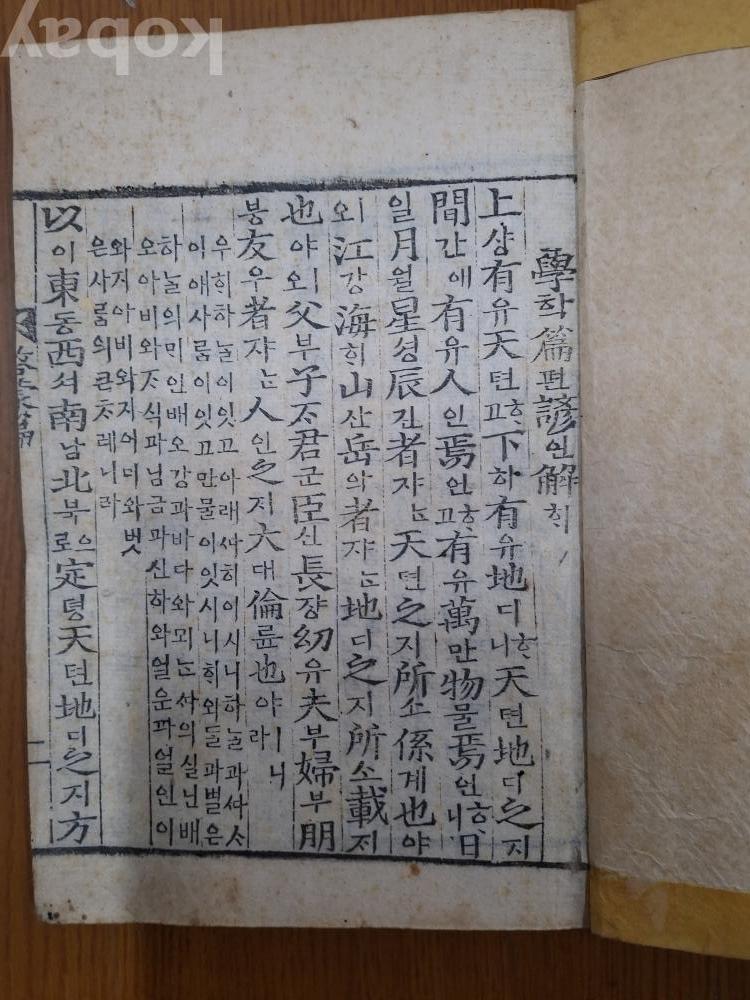 kobay
學학篇편諺언解ᄒᆡ
上샹有유天텬ᄒᆞ고下하有유地디ᄒᆞ니天텬地디之지
間간애有유人인焉언ᄒᆞ고有유萬만物물焉언ᄒᆞ니日
일月월星셩辰진者쟈ᄂᆞᆫ天텬之지所소係계也야
ㅣ오江강海ᄒᆡ山산岳악者쟈ᄂᆞᆫ地디之지所소載ᄌᆡ
也야ㅣ오父부子ᄌᆞ君군臣신長쟝幼유夫부婦부朋
붕友우者쟈ᄂᆞᆫ人인之지大대倫륜也야ㅣ니라
우희하ᄂᆞᆯ이잇고아래ᄯᅡ히이시니하ᄂᆞᆯ과ᄯᅡᄉ
이애사ᄅᆞᆷ이잇고만물이잇시니ᄒᆡ와ᄃᆞᆯ과별은
하ᄂᆞᆯ의ᄆᆡ인배오강과바다와뫼ᄂᆞᆫᄯᅡ의실닌배
오아비와ᄌᆞ식과님금과신하와얼운과얼인이
와지아비와지어미와벗
은사ᄅᆞᆷ의큰ᄎᆞ레니라
以이東동西셔南남北북으로定뎡天텬地디之지方